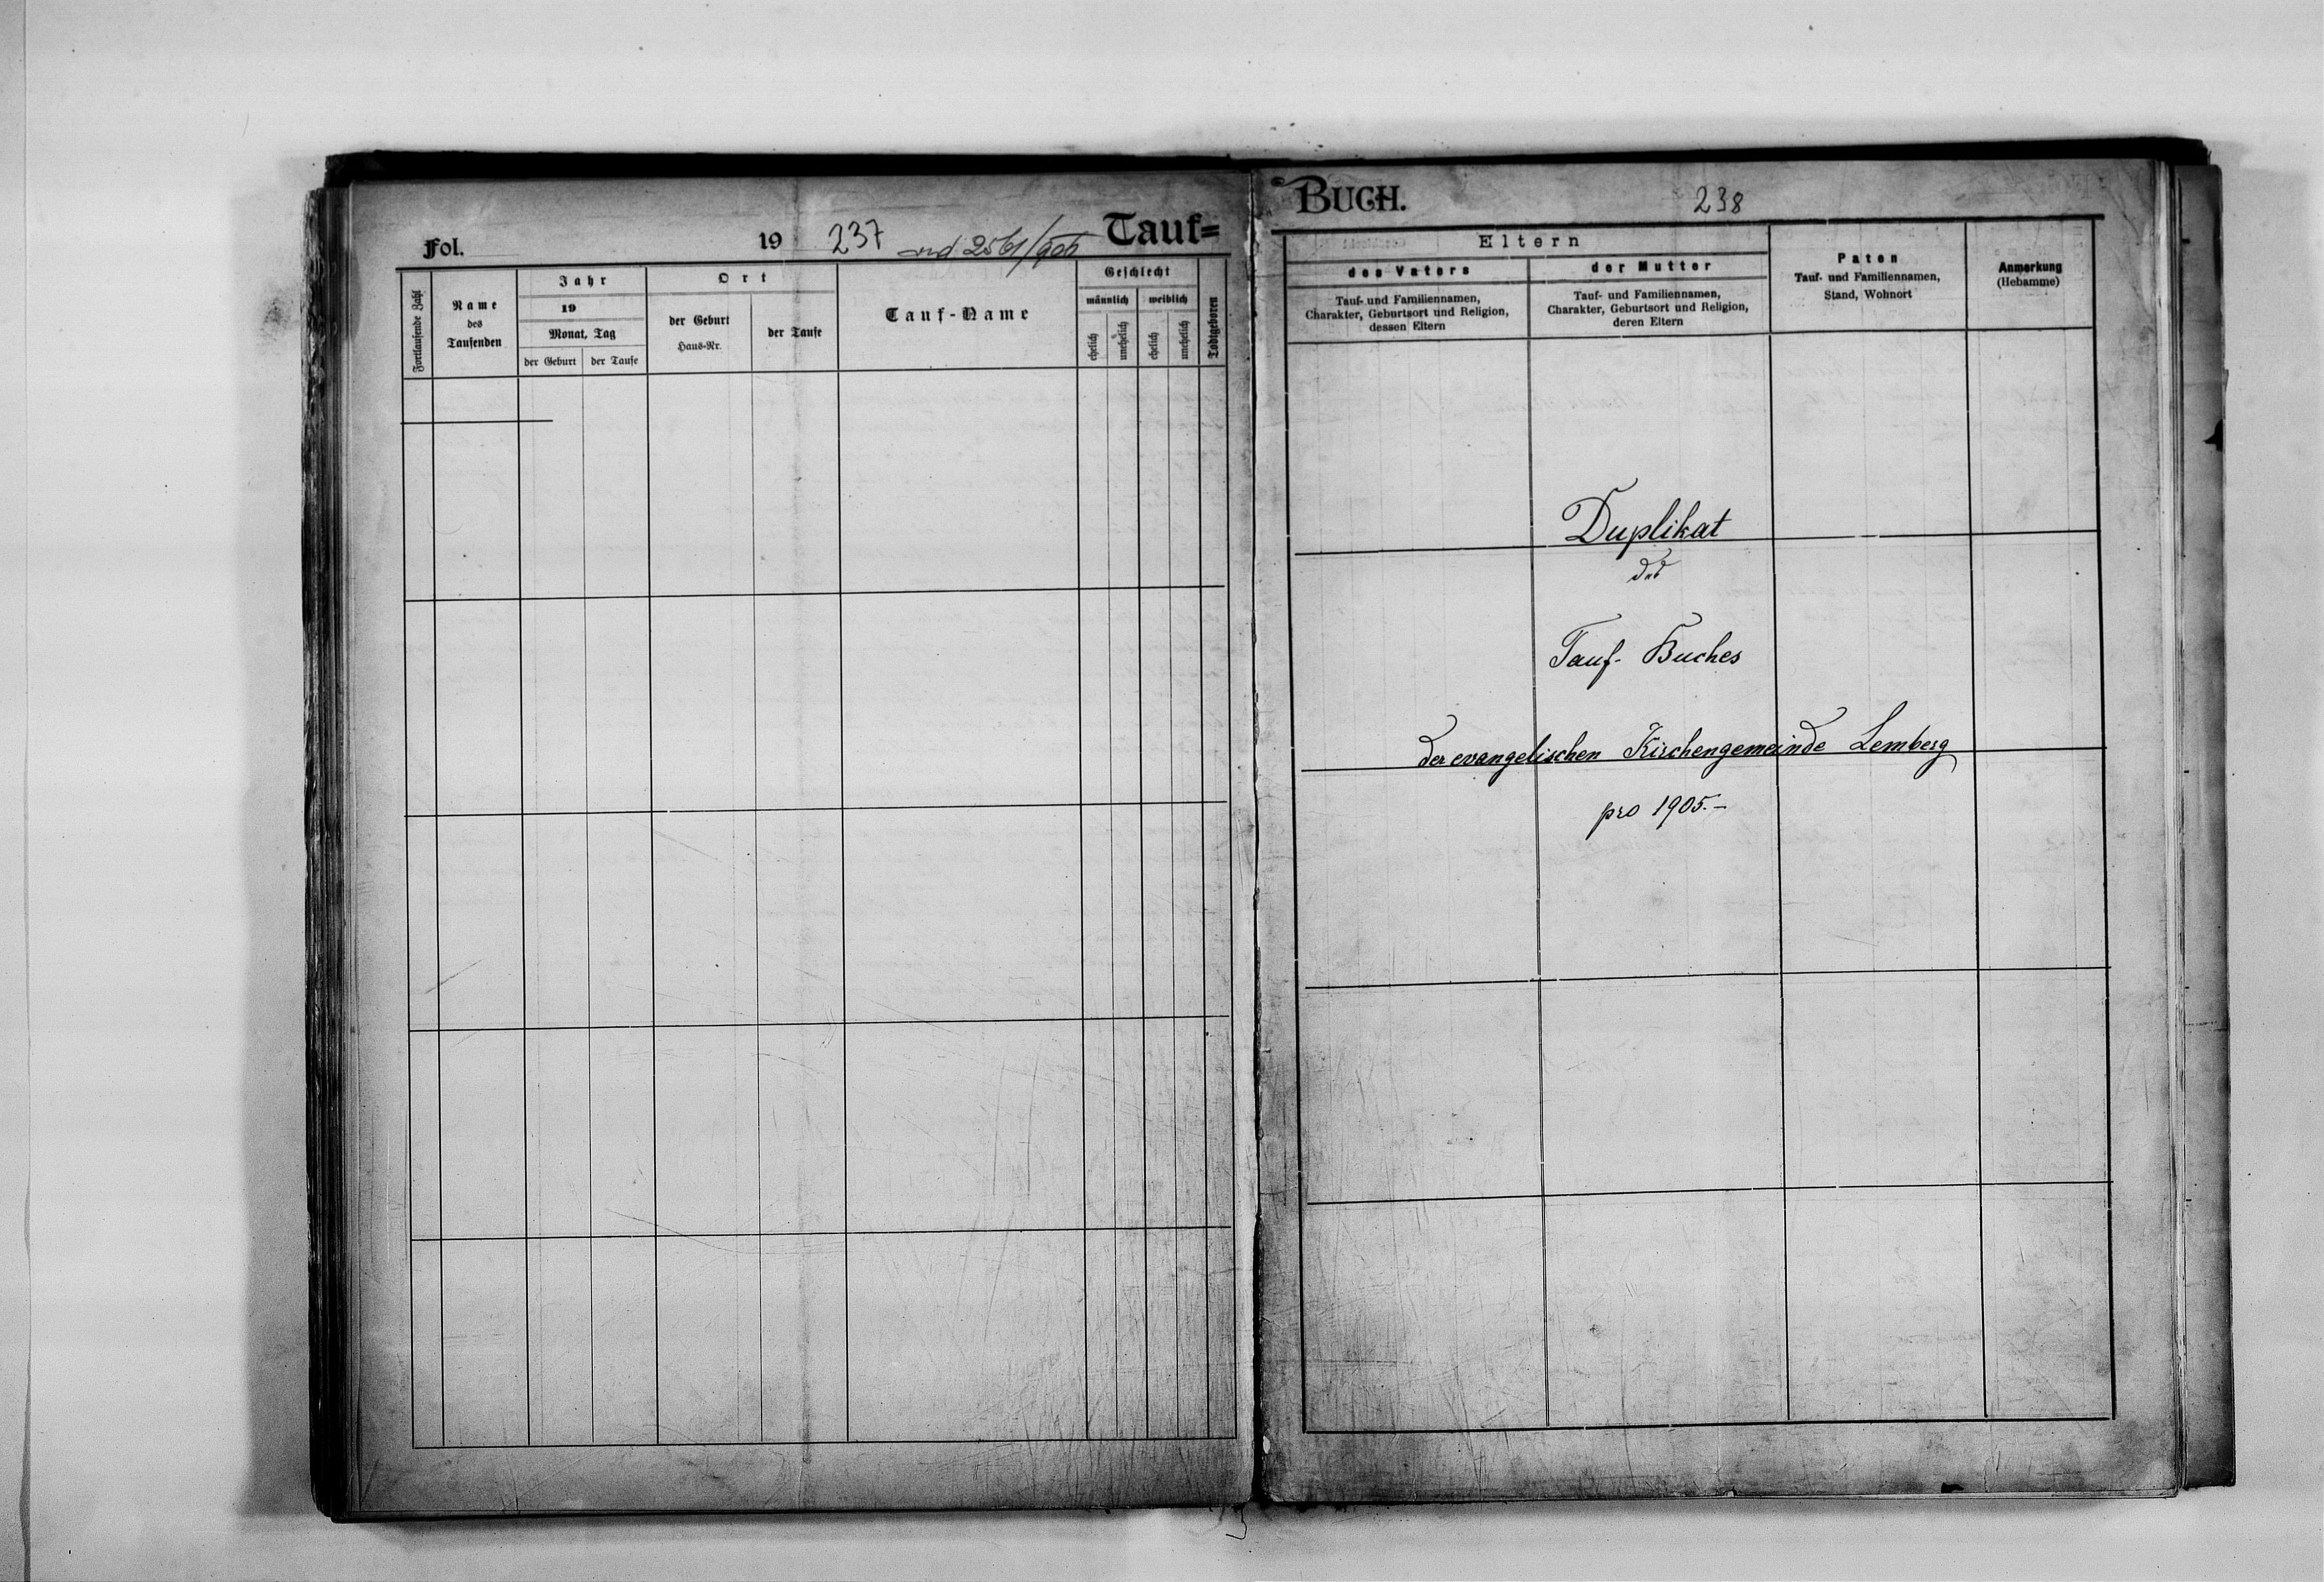 Fol.
19
237
ad 2561/905
Tauf=
Fortlaufende Zahl
Name
des
Taufenden
Jahr
19
Monat, Tag
der Geburt
der Taufe
Ort
der Geburt
Haus-Nr.
der Taufe
Tauf-Name
Geschlecht
männlich
weiblich
ehelich
unehelich
ehelich
unehelich
Todtgeboren
BUCH.
238
Eltern
des Vaters
Tauf- und Familiennamen,
Charakter, Geburtsort und Religion,
dessen Eltern
der Mutter
Tauf- und Familiennamen,
Charakter, Geburtsort und Religion,
deren Eltern
Paten
Tauf- und Familiennamen,
Stand, Wohnort
Anmerkung
(Hebamme)
Duplikat
des
Tauf- Buches
der evangelischen Kirchengemeinde Lemberg
pro 1905.-